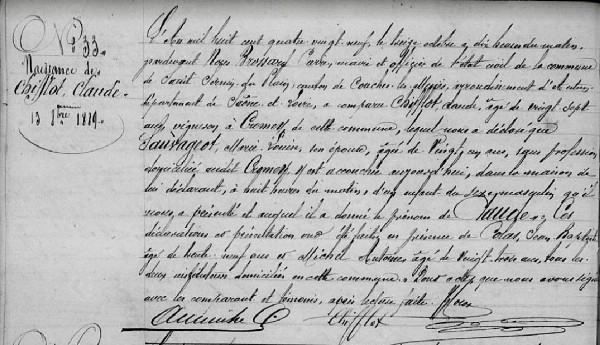 N° 33
Naissance de
Chifflot, Claude
13 8bre 1889
L'An mil huit cent quatre vingt neuf, le treize octobre à dix heures du matin
pardevant Nous Brossard Pierre, maire et officier de l'état civil de la commune
de Saint Sernin-du-Plain, canton de Couches-les-Mines, arrondissement d'Autun
département de Saône-et-Loire, a comparu Chifflot, Claude, âgé de vingt sept
ans, vigneron, à Cromey, de cette commune, lequel nous a déclaré que
Sauvageot, Marie-Louise, son épouse, âgée de vingt un ans, sans profession
domiciliée audit Cromey, est accouchée aujourd'hui, dans la maison de
lui déclarant, à huit heures du matin, d'un enfant du sexe masculin qu'il
nous a présenté et auquel il a donné le prénom de Claude. Les
déclarations et présentation ont été faites en présence de Jean
âgé de trente neuf ans et Michel Antoine, âge de vingt trois ans, tous les
deux instituteurs domiciliés en cette commune. Dont acte que nous avons signé
avec les comparant et témoins, après lecture faite.
Chifflot